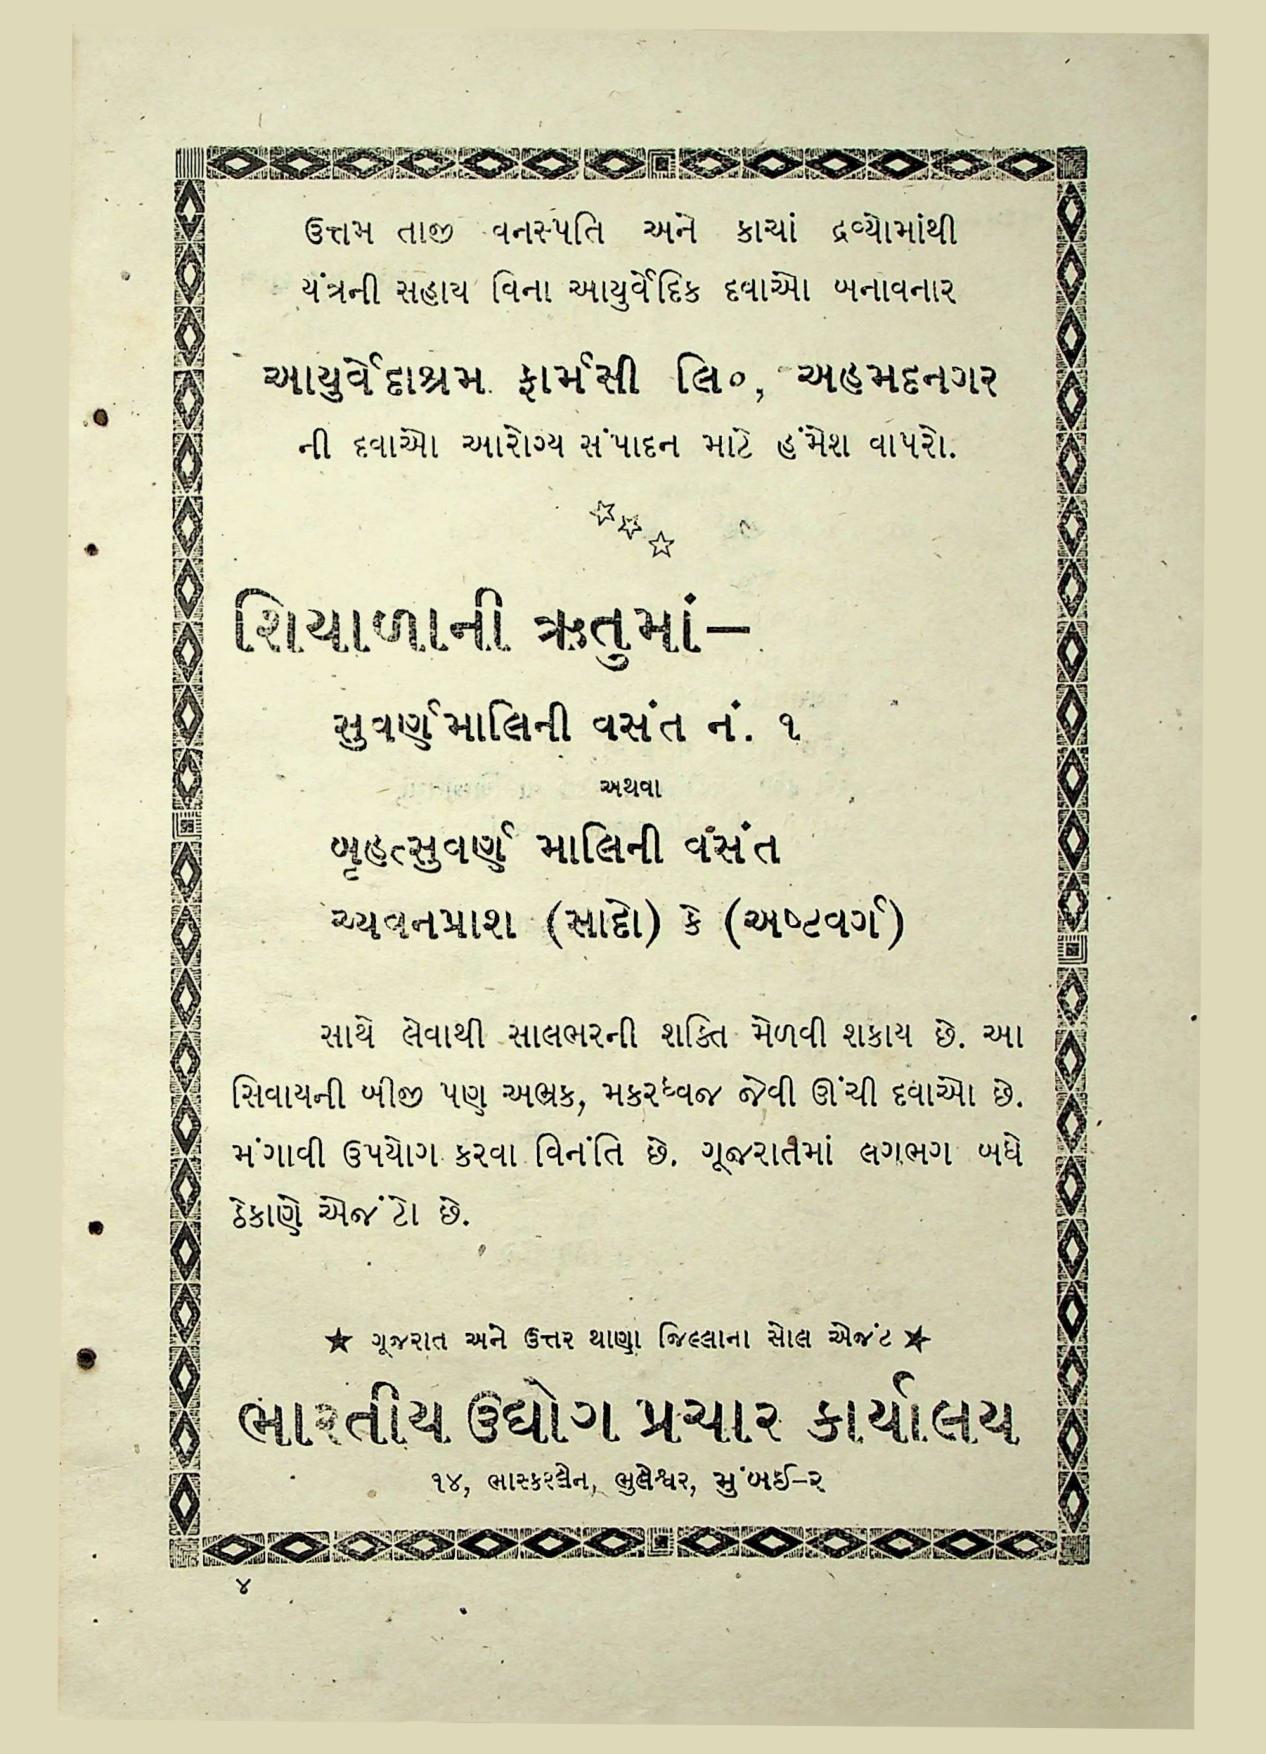 ઉત્તમ તાજી વનસ્પતિ અને કાચાં દ્રવ્યોમાંથી
યંત્રની સહાય વિના આયુર્વેદિક દવાઓ બનાવનાર
આયુર્વેદાશ્રમ ફાર્મસી લિ૦, અહમદનગર
ની દવાઓ આરોગ્ય સંપાદન માટે હંમેશ વાપરો.
શિયાળાની ઋતુમાં—
સુવર્ણમાલિની વસંત નં. ૧
અથવા
બૃહત્સુવર્ણ માલિની વસંત
ચ્યવનપ્રાશ (સાદો) કે (અષ્ટવર્ગ)
સાથે લેવાથી સાલભરની શક્તિ મેળવી શકાય છે. આ
સિવાયની બીજી પણ અભ્રક, મકરધ્વજ જેવી ઊંચી દવાઓ છે.
મંગાવી ઉપયોગ કરવા વિનંતિ છે. ગૂજરાતમાં લગભગ બધે
ઠેકાણે એજંટો છે.
★ ગૂજરાત અને ઉત્તર થાણા જિલ્લાના સોલ એજંટ ★
ભારતીય ઉદ્યોગ પ્રચાર કાર્યાલય
૧૪, ભાસ્કરલેન, ભુલેશ્વર, મુંબઈ-૨
૪